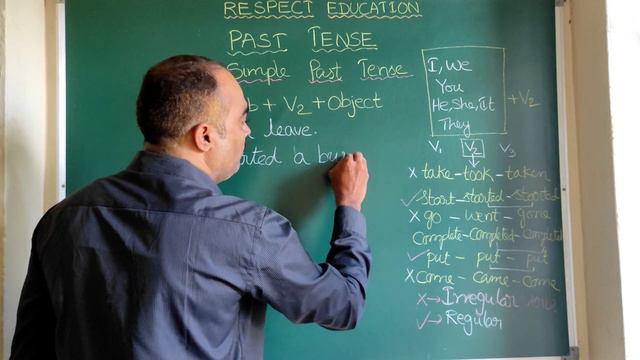 RESPECT EDUCATION
PAST TENSE
Simple Past Tense
b + V2 + Object
leave.
rted a bus
I, We
You
He, She, It
They
+ V2
V1 V2 V3
X take - took - taken
✓ start - started - started
X go - went - gone
Complete - Completed - Completed
✓ put - put - put
X came - came - came
X → Irregular
✓ → Regular